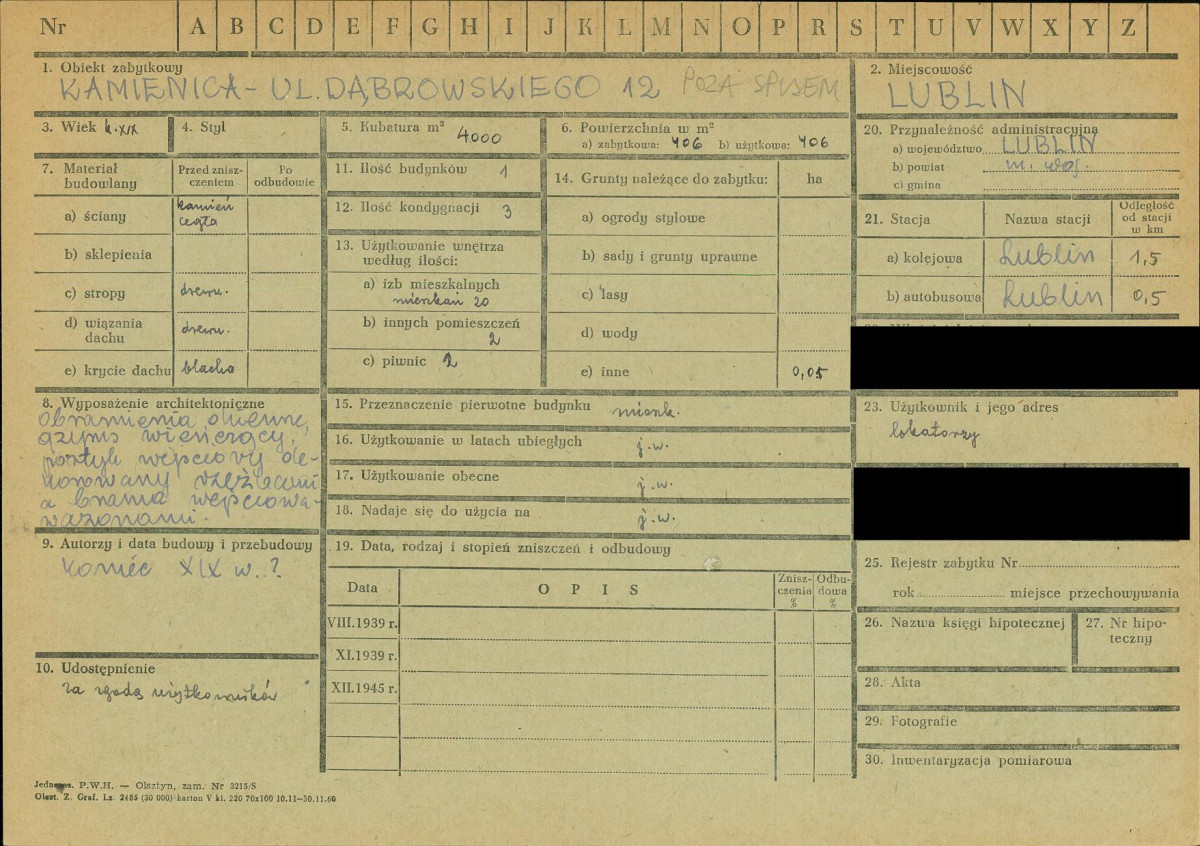 Nr A B C D E F G H I J K L M N O P R S T U V W X Y Z
1. Obiekt zabytkowy
KAMIENICA - UL. DĄBROWSKIEGO 12 POZA SPISEM
2. Miejscowość
LUBLIN
3. Wiek k. XIX
4. Styl
5. Kubatura m³ 4000
6. Powierzchnia w m²
a) zabytkowa: 406 b) użytkowa: 406
20. Przynależność administracyjna
a) województwo LUBLIN
b) powiat m. woj.
c) gmina
7. Materiał
budowlany
Przed znisz-
czeniem
Po
odbudowie
a) ściany kamień
cegła
b) sklepienia
c) stropy drewn.
d) wiązania
dachu drewn.
e) krycie dachu blacha
11. Ilość budynków 1
12. Ilość kondygnacji 3
13. Użytkowanie wnętrza
według ilości:
a) izb mieszkalnych
mieszkań 20
b) innych pomieszczeń
2
c) piwnic 2
14. Grunty należące do zabytku: ha
a) ogrody stylowe
b) sady i grunty uprawne
c) lasy
d) wody
e) inne 0,05
21. Stacja Nazwa stacji Odległość
od stacji
w km
a) kolejowa Lublin 1,5
b) autobusowa Lublin 0,5
8. Wyposażenie architektoniczne
Obramienia okienne,
gzyms wieńczący,
portyk wejściowy de-
korowany rzeźbami
a brama wejściowa
wazonami.
15. Przeznaczenie pierwotne budynku mieszk.
16. Użytkowanie w latach ubiegłych j.w.
17. Użytkowanie obecne j.w.
18. Nadaje się do użycia na j.w.
23. Użytkownik i jego adres
lokatorzy
9. Autorzy i data budowy i przebudowy
koniec XIX w. ?
10. Udostępnienie
za zgodą użytkowników
19. Data, rodzaj i stopień zniszczeń i odbudowy
Data OPIS Znisz-
czenia
%
Odbu-
dowa
%
VIII.1939 r.
XI.1939 r.
XII.1945 r.
25. Rejestr zabytku Nr
rok miejsce przechowywania
26. Nazwa księgi hipotecznej
27. Nr hipo-
teczny
28. Akta
29. Fotografie
30. Inwentaryzacja pomiarowa
P.W.H. — Olsztyn, zam. Nr 3215/S
Olszt. Z. Graf. Lz. 2485 (30 000) karton V kl. 220 70x100 10.11—30.11.60